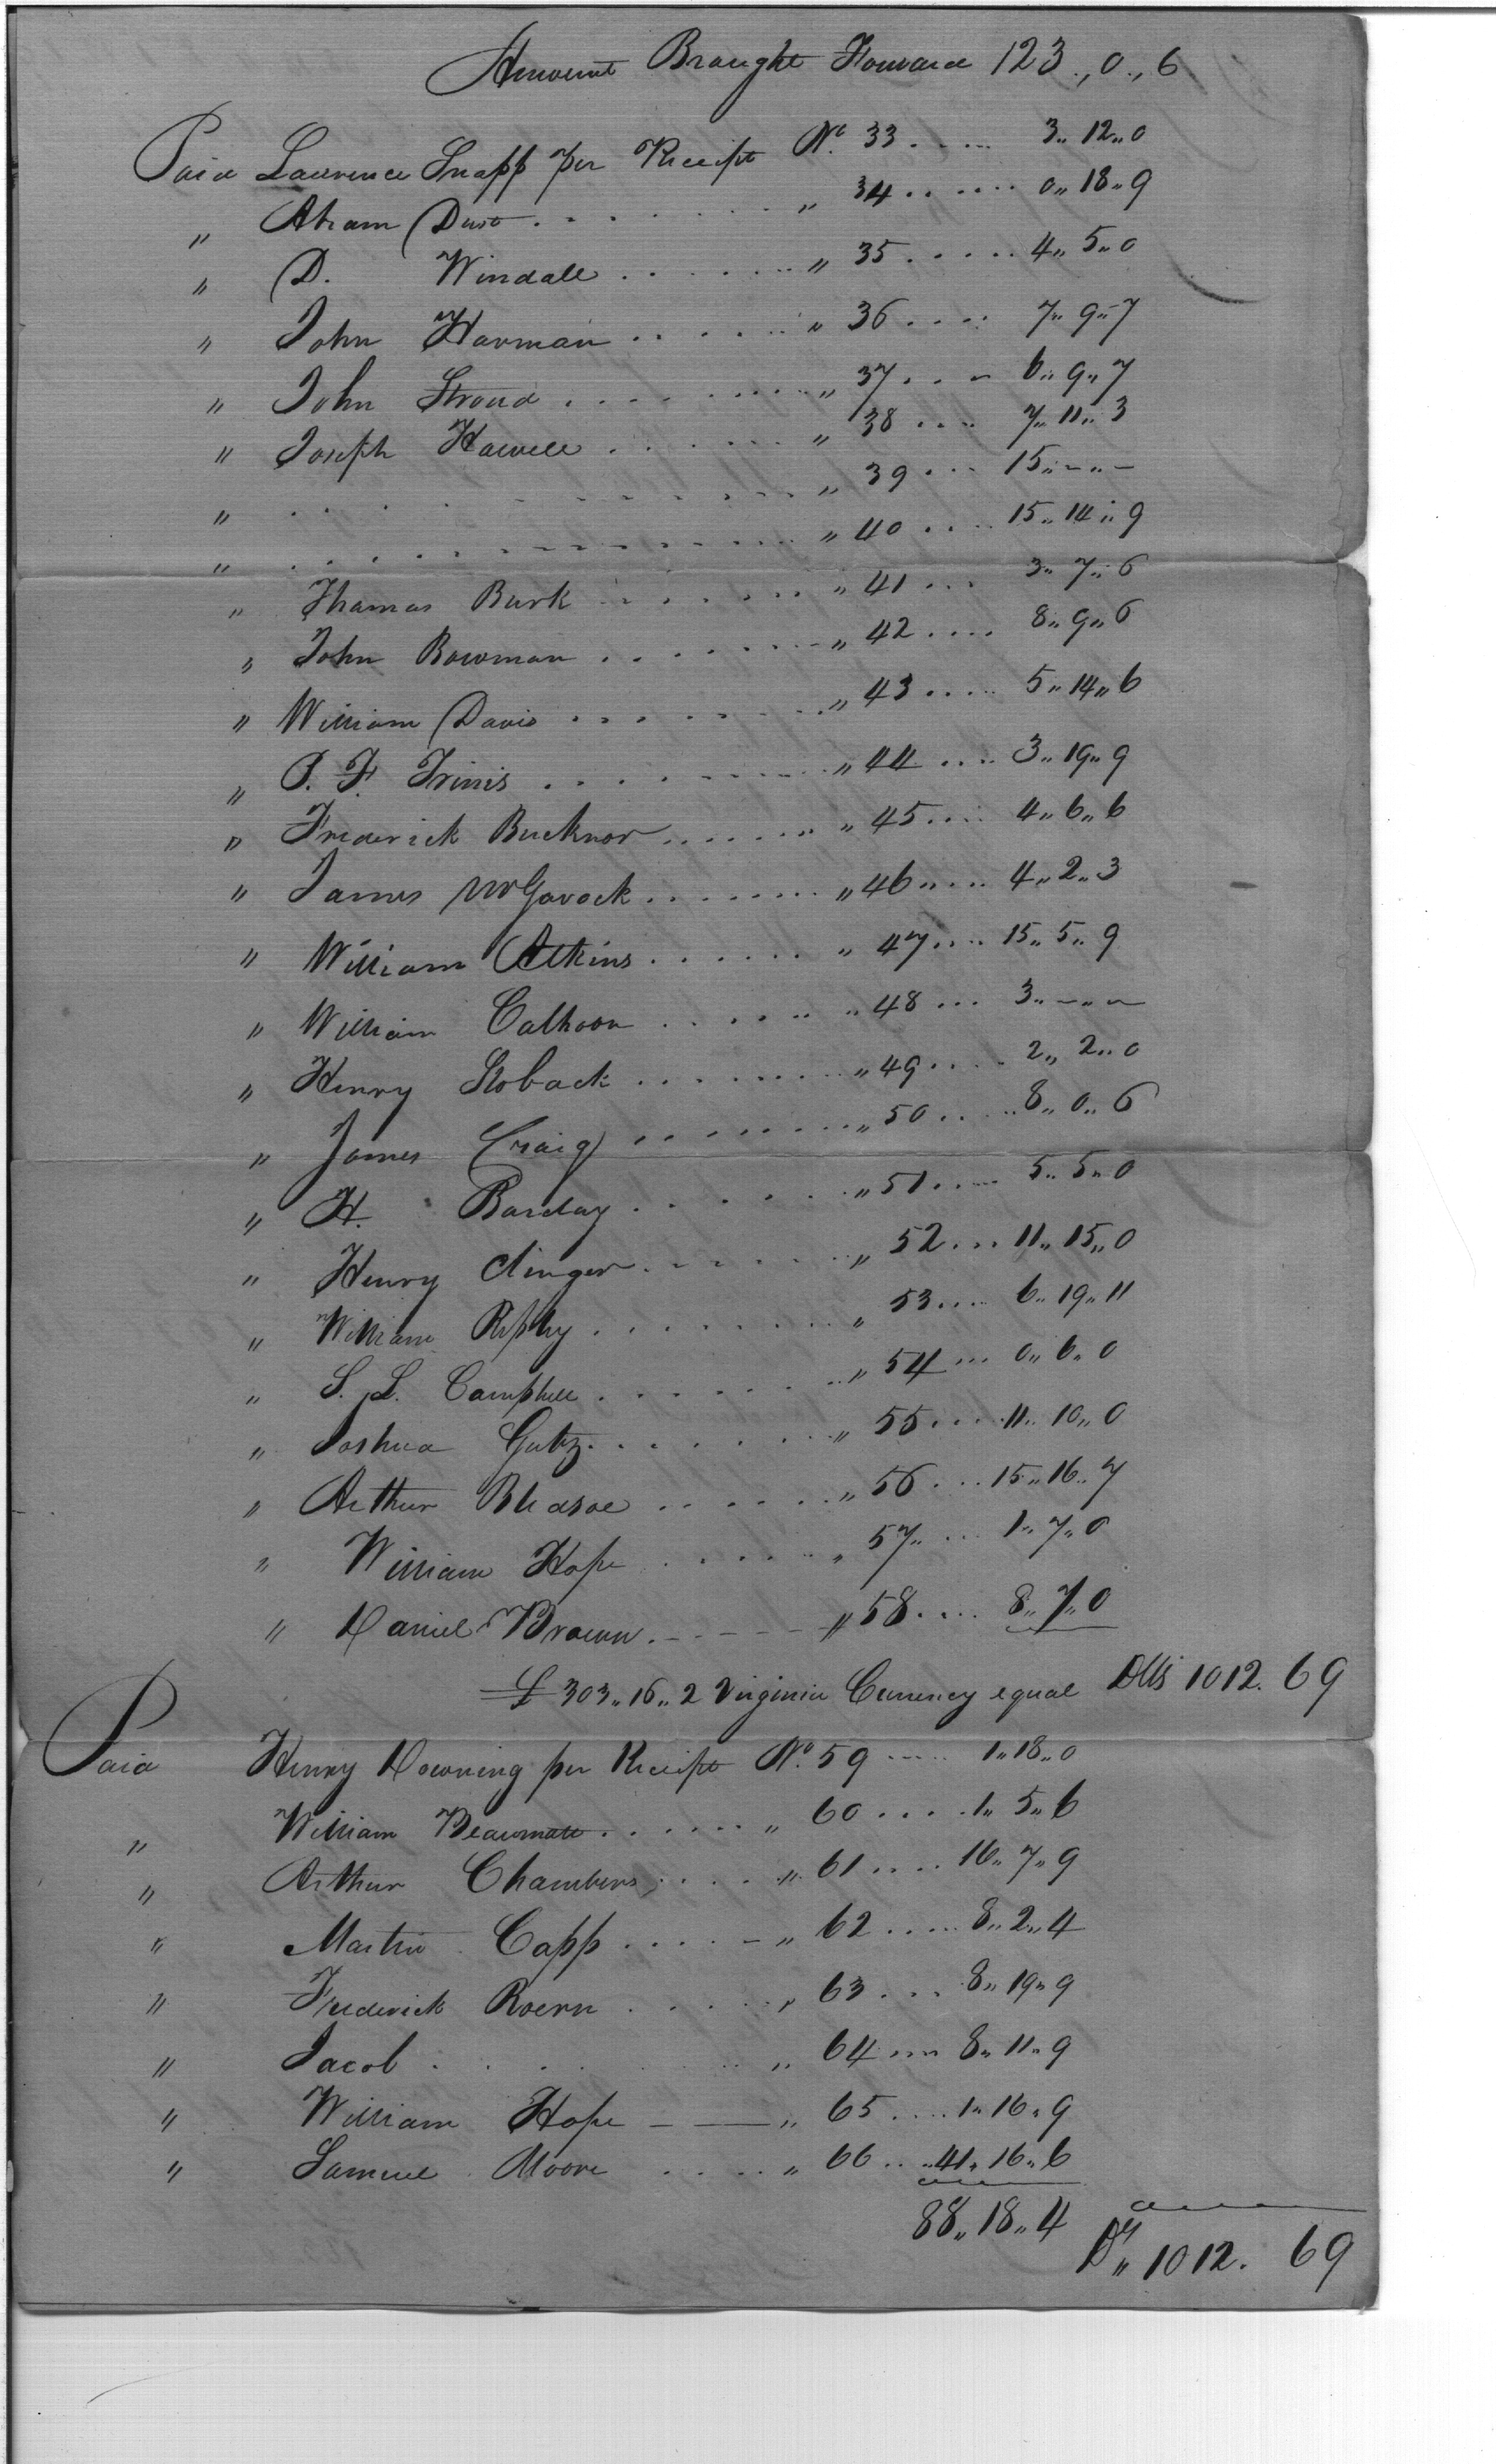 Amount Brought Forward 123,,0,,6
Paid Lawrence Snapp per Receipt No. 33 .... 3,,12,,0
,, Abram Dust ........ ,, 34 ...... 0,,18,,9
,, D. Windall ...... ,, 35 ..... 4,,5,,0
,, John Harman ...... ,, 36 .... 7,,9,,7
,, John Stroud ........ ,, 37 ... 6,,9,,7
,, Joseph Howell ...... ,, 38 .... 7,,11,,3
,, ........ ,, 39 ... 15,,–,,–
,, ........ ,, 40 .... 15,,14,,9
,, Thomas Burk ....... ,, 41 ... 3,,7,,6
,, John Bowman ....... ,, 42 .... 8,,9,,6
,, William Davis ........ ,, 43 ..... 5,,14,,6
,, P. F. ........ ,, 44 .... 3,,19,,9
,, Frederick Bucknor ...... ,, 45 .... 4,,6,,6
,, James McGavock ....... ,, 46 .... 4,,2,,3
,, William Atkins ...... ,, 47 .... 15,,5,,9
,, William Calhoon ...... ,, 48 ... 3,,–,,–
,, Henry ....... ,, 49 .... 2,,2,,0
,, James Craig ........ ,, 50 ..... 8,,0,,6
,, H. Barclay ...... ,, 51 .... 5,,5,,0
,, Henry Clinger ...... ,, 52 ... 11,,15,,0
,, William Ripley ........ ,, 53 .... 6,,19,,11
,, S. L. Campbell ....... ,, 54 ... 0,,6,,0
,, Joshua Gutz ....... ,, 55 .... 11,,10,,0
,, Arthur Bledsoe ...... ,, 56 ... 15,,16,,7
,, William Hope ...... ,, 57 ... 1,,7,,0
,, Daniel Brown ...... ,, 58 .... 8,,7,,0
£ 303,,16,,2 Virginia Currency equal Dlls 1012.69
Paid Henry Downing per Receipt No. 59 ..... 1,,18,,0
,, William ...... ,, 60 .... 1,,5,,6
,, Arthur Chambers .... ,, 61 .... 16,,7,,9
,, Martin Capp .... ,, 62 ..... 8,,2,,4
,, Frederick ..... ,, 63 ... 8,,19,,9
,, Jacob ...... ,, 64 .... 8,,11,,9
,, William Hope – — ,, 65 .... 1,,16,,9
,, Samuel Moore .... ,, 66 ... 41,,16,,6
88,,18,,4 Dlls 1012.69